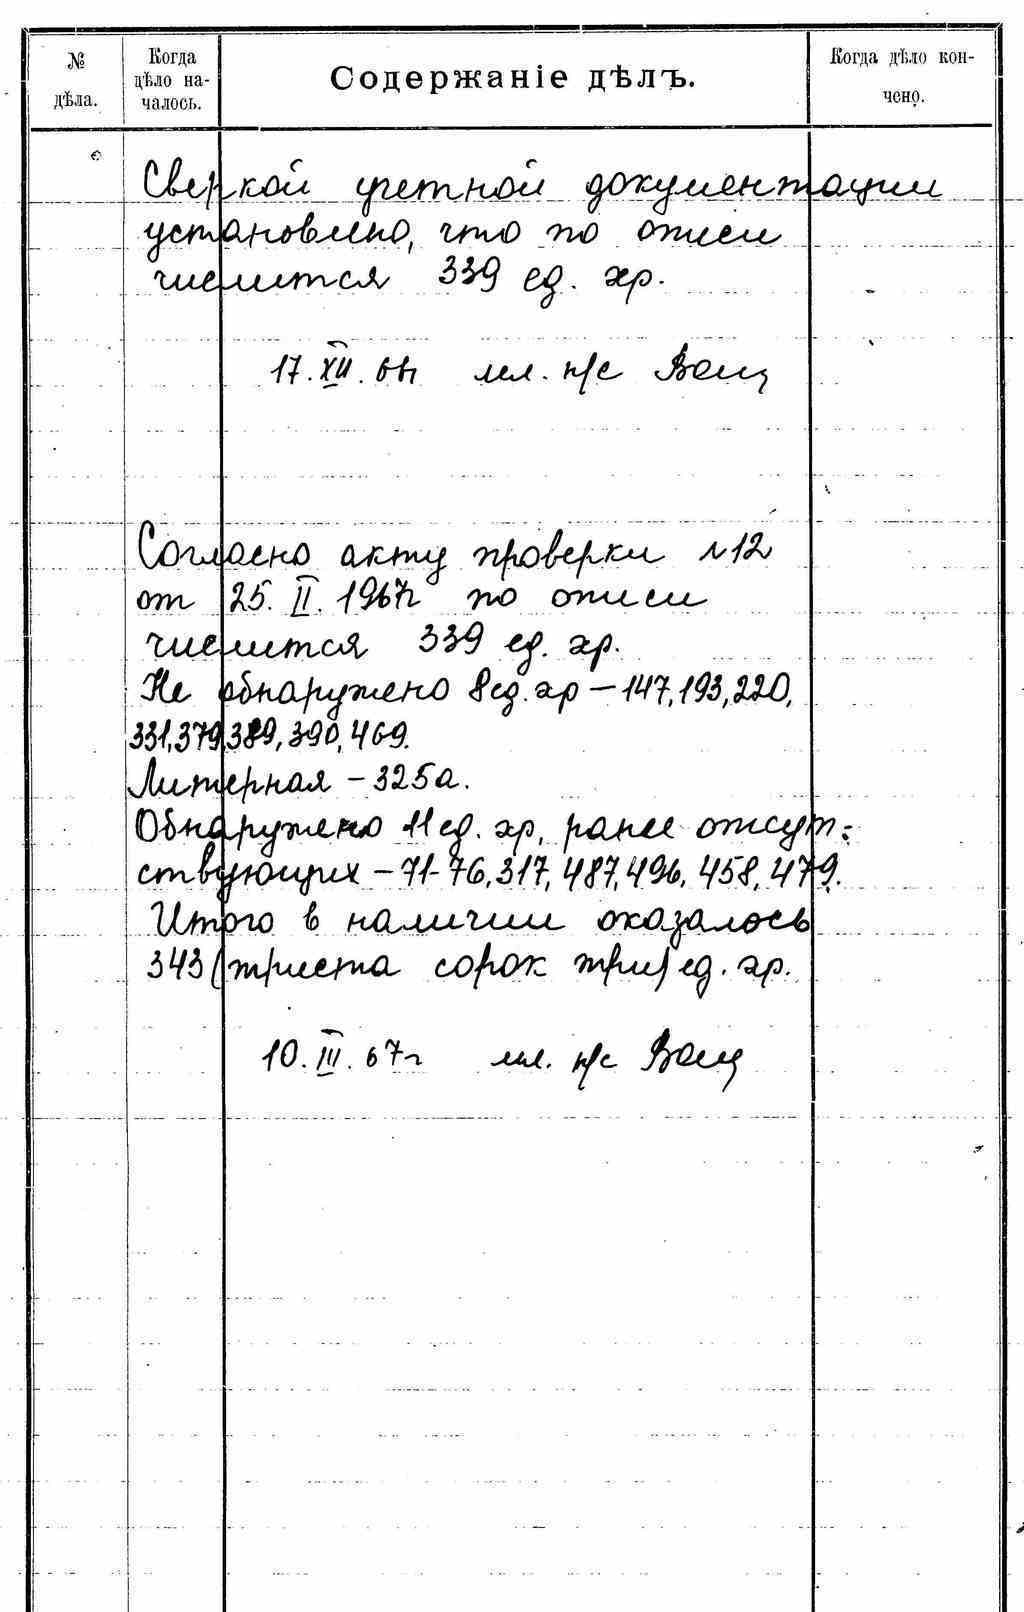 № дѣла.
Когда дѣло на-чалось.
Содержаніе дѣлъ.
Когда дѣло кон-чено.
Сверкой учетной документации
установлено, что по описи
числится 339 ед. хр.
17. XII. 66г мл. н/с
Согласно акту проверки №12
от 25. II. 1967г по описи
числится 339 ед. хр.
Не обнаружено 8 ед. хр – 147, 193, 220,
331, 379, 389, 390, 469.
Литерная – 325а.
Обнаружено 11 ед. хр, ранее отсут-
ствующих – 71-76, 317, 487, 496, 458, 479.
Итого в наличии оказалось
343 (триста сорок три) ед. хр.
10. III. 67г мл. н/с